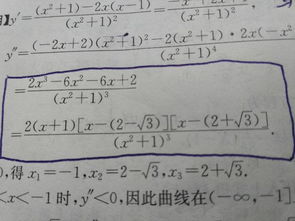 y′=\frac{(x²+1)-2x(x-1)}{(x²+1)²}=
y″=\frac{(-2x+2)(x²+1)²-2(x²+1)·2x(-x²}{(x²+1)⁴}
=\frac{2x³-6x²-6x+2}{(x²+1)³}
=\frac{2(x+1)[x-(2-√3)][x-(2+√3)]}{(x²+1)³}.
,得 x₁=-1,x₂=2-√3,x₃=2+√3.
<x<-1时,y″<0,因此曲线在(-∞,-1]